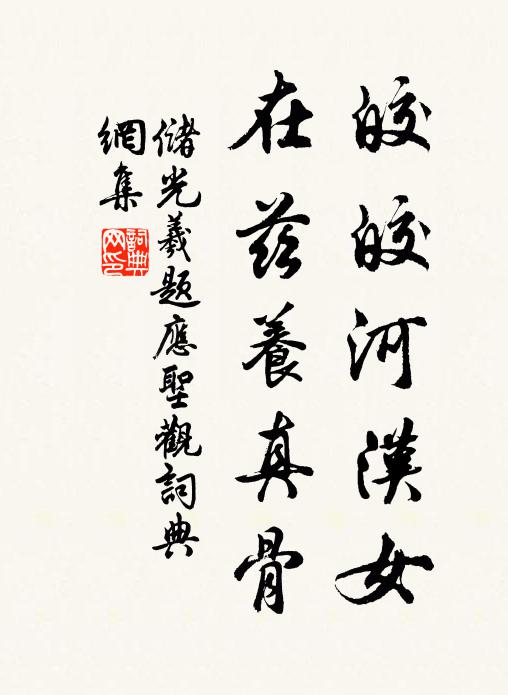 皎皎河漢女
在茲養真骨
儲光羲題應聖觀詞典
網集
詞典
网印